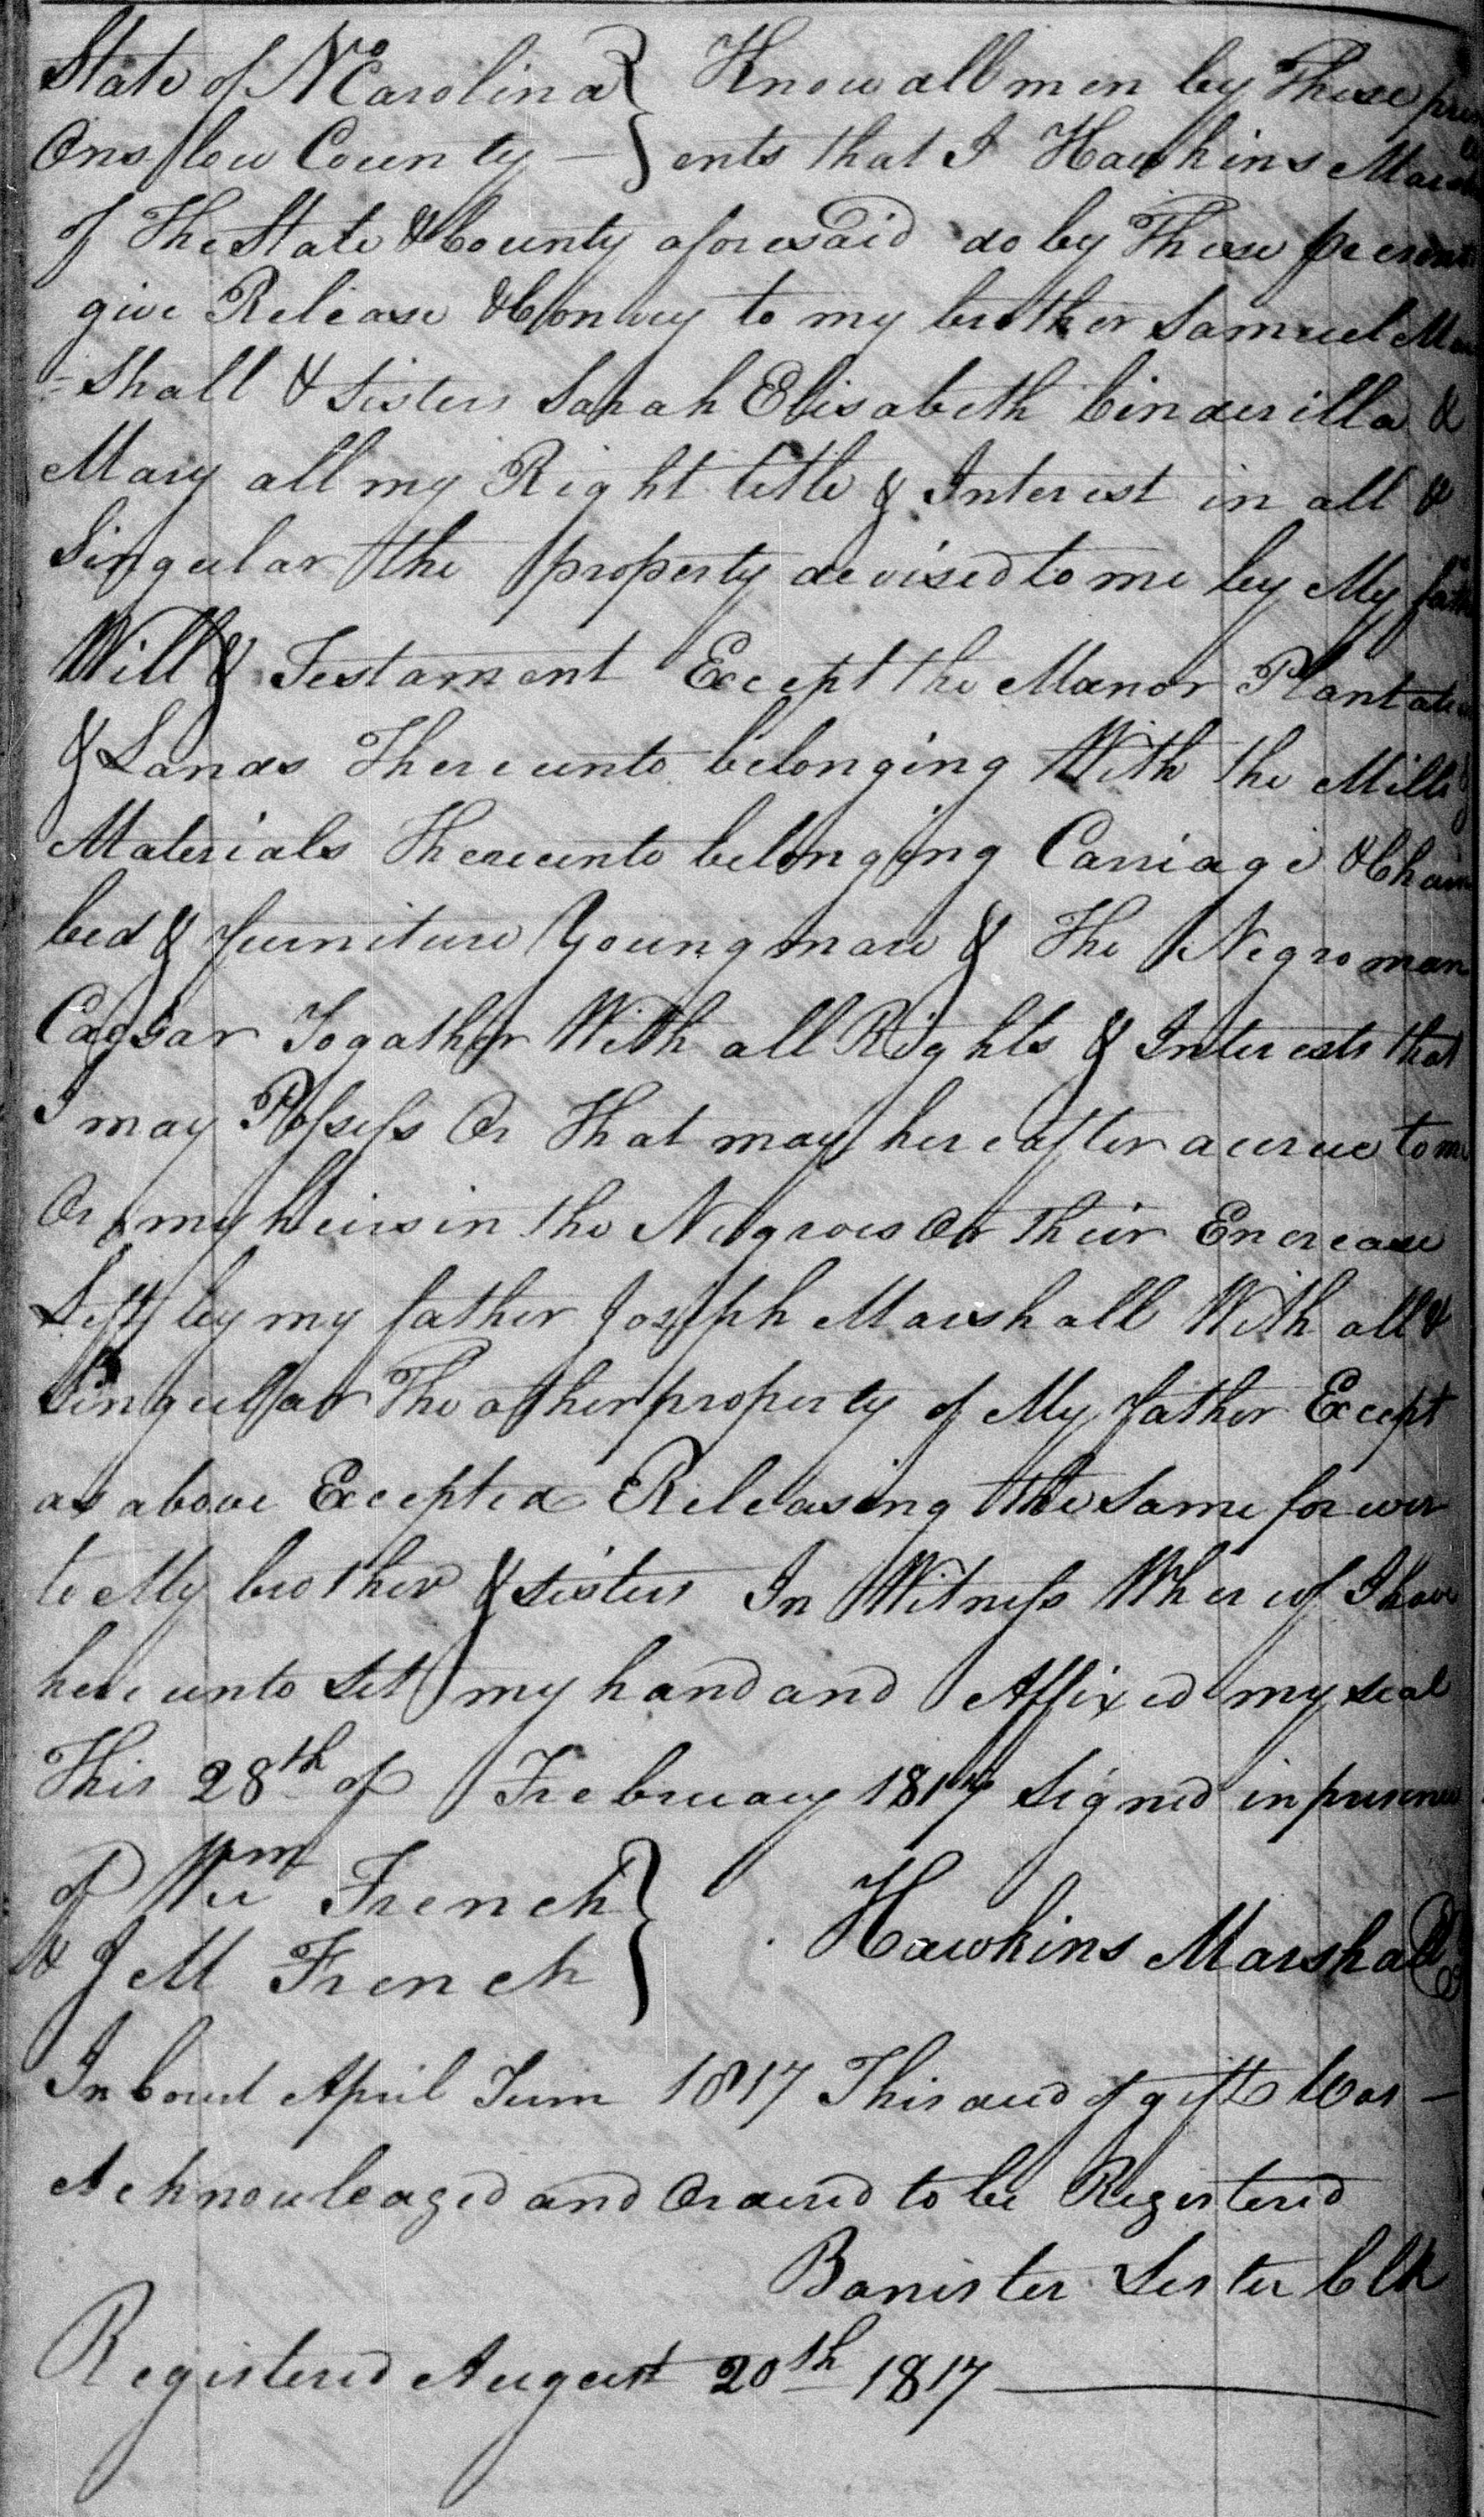 State of No Carolina } Know all men by These pres
Onslow County — } ents that I Hawkins Marsh
of The State & County aforesaid do by These present
give Release & Convey to my brother Samuel Mar
-shall & Sisters Sarah Elisabeth Cinderilla &
Mary all my Right title & Interest in all &
Singular the property devised to me by My fath
Will & Testament Except the Manor Plantatio
& Lands Thereunto belonging With the Mills &
Materials Thereunto belonging Carriage & Chair
bed & furniture Young mare & The Negro man
Caesar Togather With all Rights & Interests that
I may Possess Or That may hereafter accrue to me
Or my heirs in the Negroes Or their Encrease
Left by my father Joseph Marshall With all &
Singular The other property of My father Except
as above Excepted Releasing the Same for ever
to My brother & sisters In Witness Where of I have
here unto Set my hand and Affixed my seal
This 28th of February 1817 Signed in presence
of Wm French }
& J M French } Hawkins Marshall
In Court April Term 1817 This deed of gift was —
Acknowledged and Ordered to be Registered
Banister Lester Clk
Registered August 20th 1817